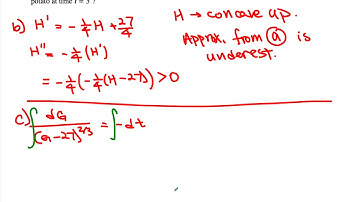 potato at time t = 3 ?
b) H' = -1/4 H + 27/4
H'' = -1/4 (H')
= -1/4 (-1/4 (H-27)) > 0
H → concave up.
Approx. from (a) is
underest.
c) ∫ dG/(G-27)^2/3 = ∫ -dt